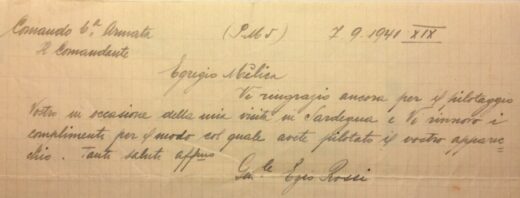 Comando 6ª Armata (P.M.5) 7.9.1941 XIX
Il Comandante
Egregio Mèlica
Vi ringrazio ancora per il pilotaggio
Vostro in occasione della mia visita in Sardegna e Vi rinnovo i
complimenti per il modo col quale avete pilotato il vostro apparec=
chio. Tanti saluti affmo
Gen.le Ezio Rossi